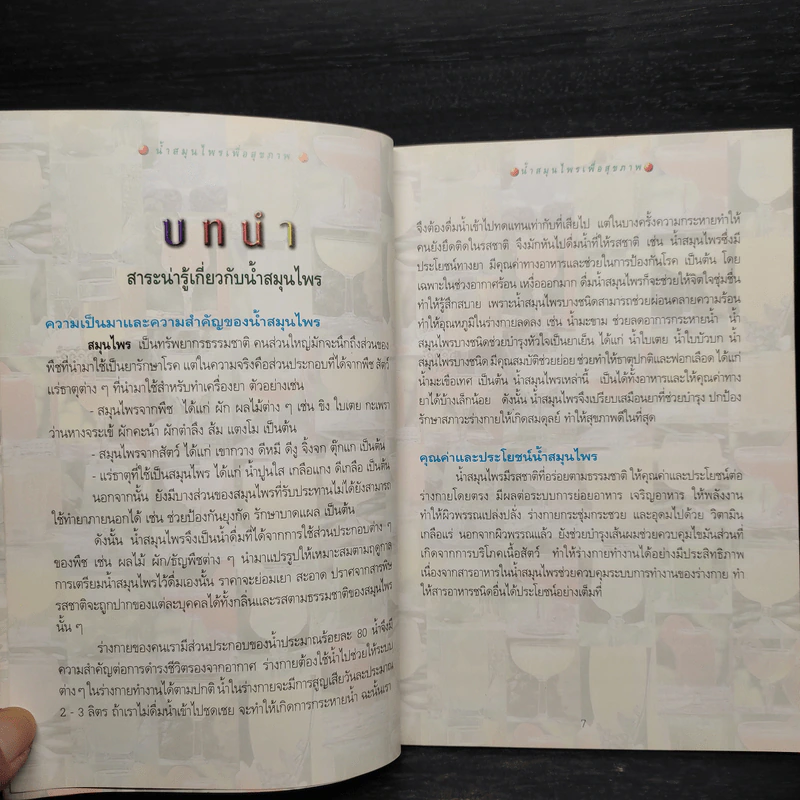 น้ำสมุนไพรเพื่อสุขภาพ
บทนำ
สาระน่ารู้เกี่ยวกับน้ำสมุนไพร
ความเป็นมาและความสำคัญของน้ำสมุนไพร
สมุนไพร เป็นทรัพยากรธรรมชาติ คนส่วนใหญ่มักจะนึกถึงส่วนของ
พืชที่นำมาใช้เป็นยารักษาโรค แต่ในความจริงคือส่วนประกอบที่ได้จากพืช สัตว์
แร่ธาตุต่าง ๆ ที่นำมาใช้สำหรับทำเครื่องยา ตัวอย่างเช่น
- สมุนไพรจากพืช ได้แก่ ผัก ผลไม้ต่าง ๆ เช่น ขิง ใบเตย กะเพรา
ว่านหางจระเข้ ผักคะน้า ผักตำลึง ส้ม แตงโม เป็นต้น
- สมุนไพรจากสัตว์ ได้แก่ เขากวาง ดีหมี ดีงู จิ้งจก ตุ๊กแก เป็นต้น
- แร่ธาตุที่ใช้เป็นสมุนไพร ได้แก่ น้ำปูนใส เกลือแกง ดีเกลือ เป็นต้น
นอกจากนั้น ยังมีบางส่วนของสมุนไพรที่รับประทานไม่ได้ยังสามารถ
ใช้ทำยาภายนอกได้ เช่น ช่วยป้องกันยุงกัด รักษาบาดแผล เป็นต้น
ดังนั้น น้ำสมุนไพรจึงเป็นน้ำดื่มที่ได้จากการใช้ส่วนประกอบต่าง ๆ
ของพืช เช่น ผลไม้ ผัก/ธัญพืชต่าง ๆ นำมาแปรรูปให้เหมาะสมตามฤดูกาล
การเตรียมน้ำสมุนไพรไว้ดื่มเองนั้น ราคาจะย่อมเยา สะอาด ปราศจากสารพิษ
รสชาติจะถูกปากของแต่ละบุคคลได้ทั้งกลิ่นและรสตามธรรมชาติของสมุนไพร
นั้น ๆ
ร่างกายของคนเรามีส่วนประกอบของน้ำประมาณร้อยละ 80 น้ำจึงมี
ความสำคัญต่อการดำรงชีวิตรองจากอากาศ ร่างกายต้องใช้น้ำไปช่วยให้ระบบ
ต่าง ๆ ในร่างกายทำงานได้ตามปกติ น้ำในร่างกายจะมีการสูญเสียวันละประมาณ
2 - 3 ลิตร ถ้าเราไม่ดื่มน้ำเข้าไปชดเชย จะทำให้เกิดการกระหายน้ำ ฉะนั้นเรา
น้ำสมุนไพรเพื่อสุขภาพ
จึงต้องดื่มน้ำเข้าไปทดแทนเท่ากับที่เสียไป แต่ในบางครั้งความกระหายทำให้
คนยังยึดติดในรสชาติ จึงมักหันไปดื่มน้ำที่ให้รสชาติ เช่น น้ำสมุนไพรซึ่งมี
ประโยชน์ทางยา มีคุณค่าทางอาหารและช่วยในการป้องกันโรค เป็นต้น โดย
เฉพาะในช่วงอากาศร้อน เหงื่อออกมาก ดื่มน้ำสมุนไพรก็จะช่วยให้จิตใจชุ่มชื่น
ทำให้รู้สึกสบาย เพราะน้ำสมุนไพรบางชนิดสามารถช่วยผ่อนคลายความร้อน
ทำให้อุณหภูมิในร่างกายลดลง เช่น น้ำมะขาม ช่วยลดอาการกระหายน้ำ น้ำ
สมุนไพรบางชนิดช่วยบำรุงหัวใจเป็นยาเย็น ได้แก่ น้ำใบเตย น้ำใบบัวบก น้ำ
สมุนไพรบางชนิด มีคุณสมบัติช่วยย่อย ช่วยทำให้ธาตุปกติและฟอกเลือด ได้แก่
น้ำมะเขือเทศ เป็นต้น น้ำสมุนไพรเหล่านี้ เป็นได้ทั้งอาหารและให้คุณค่าทาง
ยาได้บ้างเล็กน้อย ดังนั้น น้ำสมุนไพรจึงเปรียบเสมือนยาที่ช่วยบำรุง ปกป้อง
รักษาสภาวะร่างกายให้เกิดสมดุลย์ ทำให้สุขภาพดีในที่สุด
คุณค่าและประโยชน์น้ำสมุนไพร
น้ำสมุนไพรมีรสชาติที่อร่อยตามธรรมชาติ ให้คุณค่าและประโยชน์ต่อ
ร่างกายโดยตรง มีผลต่อระบบการย่อยอาหาร เจริญอาหาร ให้พลังงาน
ทำให้ผิวพรรณเปล่งปลั่ง ร่างกายกระชุ่มกระชวย และอุดมไปด้วย วิตามิน
เกลือแร่ นอกจากผิวพรรณแล้ว ยังช่วยบำรุงเส้นผมช่วยควบคุมไขมันส่วนที่
เกิดจากการบริโภคเนื้อสัตว์ ทำให้ร่างกายทำงานได้อย่างมีประสิทธิภาพ
เนื่องจากสารอาหารในน้ำสมุนไพรช่วยควบคุมระบบการทำงานของร่างกาย ทำ
ให้สารอาหารชนิดอื่นได้ประโยชน์อย่างเต็มที่
7